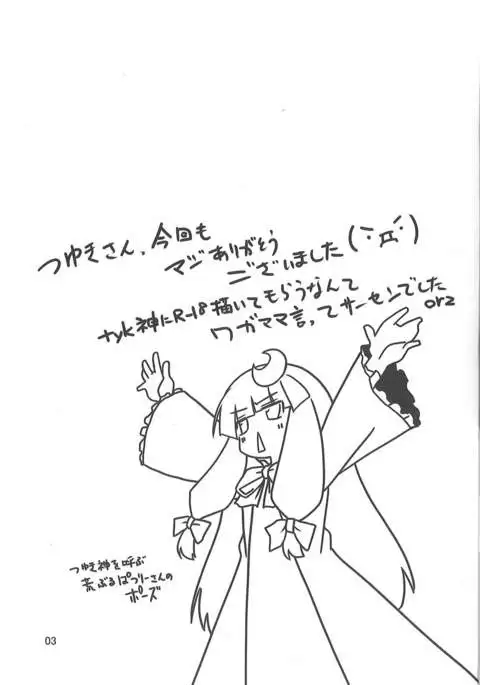 つゆきさん、今回も
マジありがとう
ございました(ﾟдﾟ)
tyk神にR-18描いてもらうなんて
ワガママ言ってサーセンでした
orz
つゆき神を呼ぶ
荒ぶるぱつりーさんの
ポーズ
03